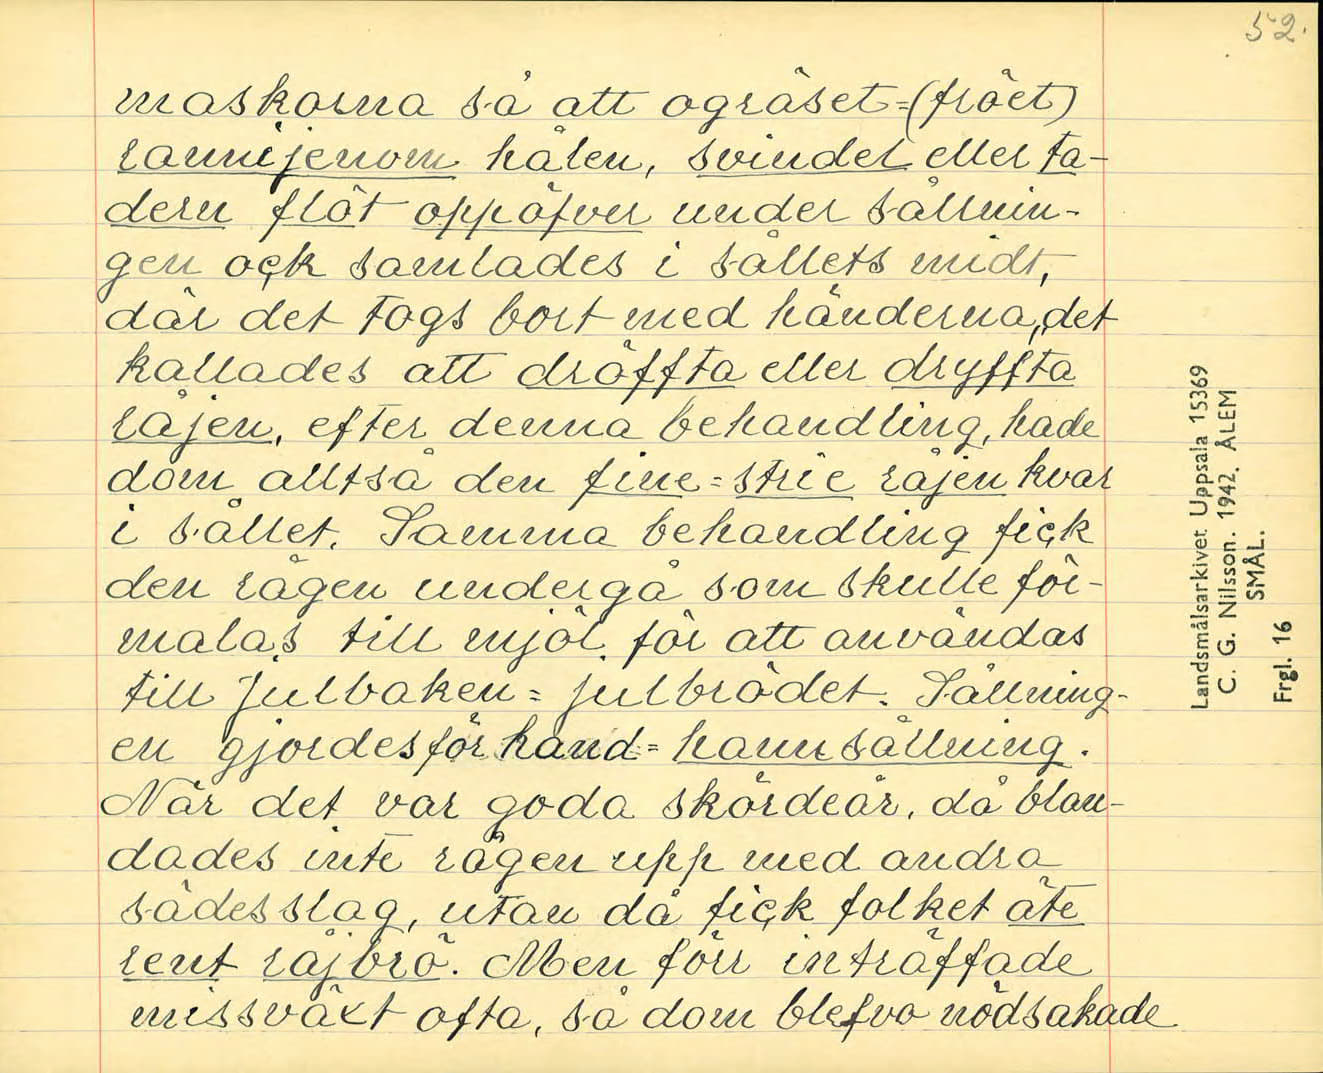 52.
maskorna så att ogräset=(fröet)
rannijenom hålen, svindel eller ta-
dern flöt oppöfver under sållnin-
gen ock samlades i sållets midt,
där det togs bort med händerna, det
kallades att dröffta eller dryffta
råjen, efter denna behandling, hade
dom alltså den fine=strie råjen kvar
i sållet. Samma behandling fick
den rågen undergå som skulle för-
malas till mjöl. för att användas
till Julbaken= julbrödet. Sållning-
en gjordes för hand= hannsållning.
När det var goda skördeår, då blan-
dades inte rågen upp med andra
sädesslag, utan då fick folket äte
rent råjbrö. Men förr inträffade
missväxt ofta, så dom blefvo nödsakade
Landsmålsarkivet Uppsala 15369
C. G. Nilsson. 1942. ÅLEM
SMÅL.
Frgl. 16